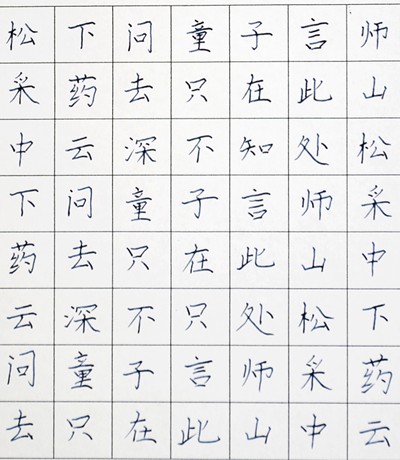 松下问童子言师
采药去只在此山
中云深不知处松
下问童子言师采
药去只在此山中
云深不只处松下
问童子言师采药
去只在此山中云